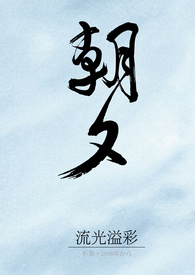 朝夕
流光溢彩